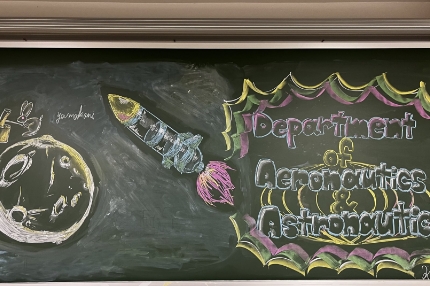 Department
of
Aeronautics
&
Astronautic